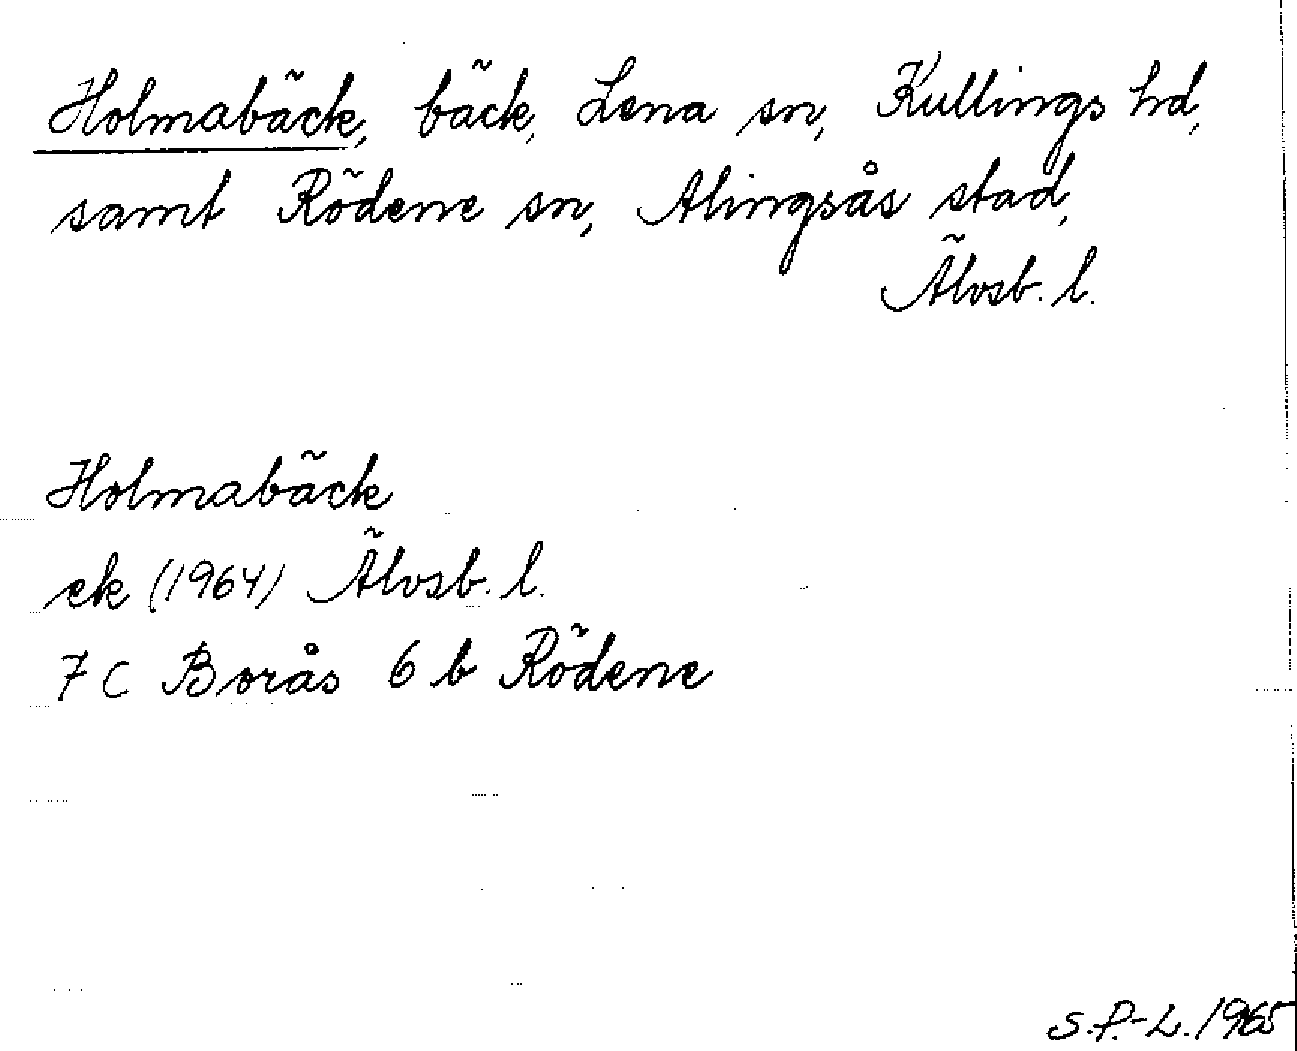 Holmabäck, bäck, Lena sn, Kullings hd,
samt Rödene sn, Alingsås stad,
Älvsb. l.
Holmabäck
ek (1964) Älvsb. l.
7 C Borås 6 b Rödene
S.P.-L. 1965